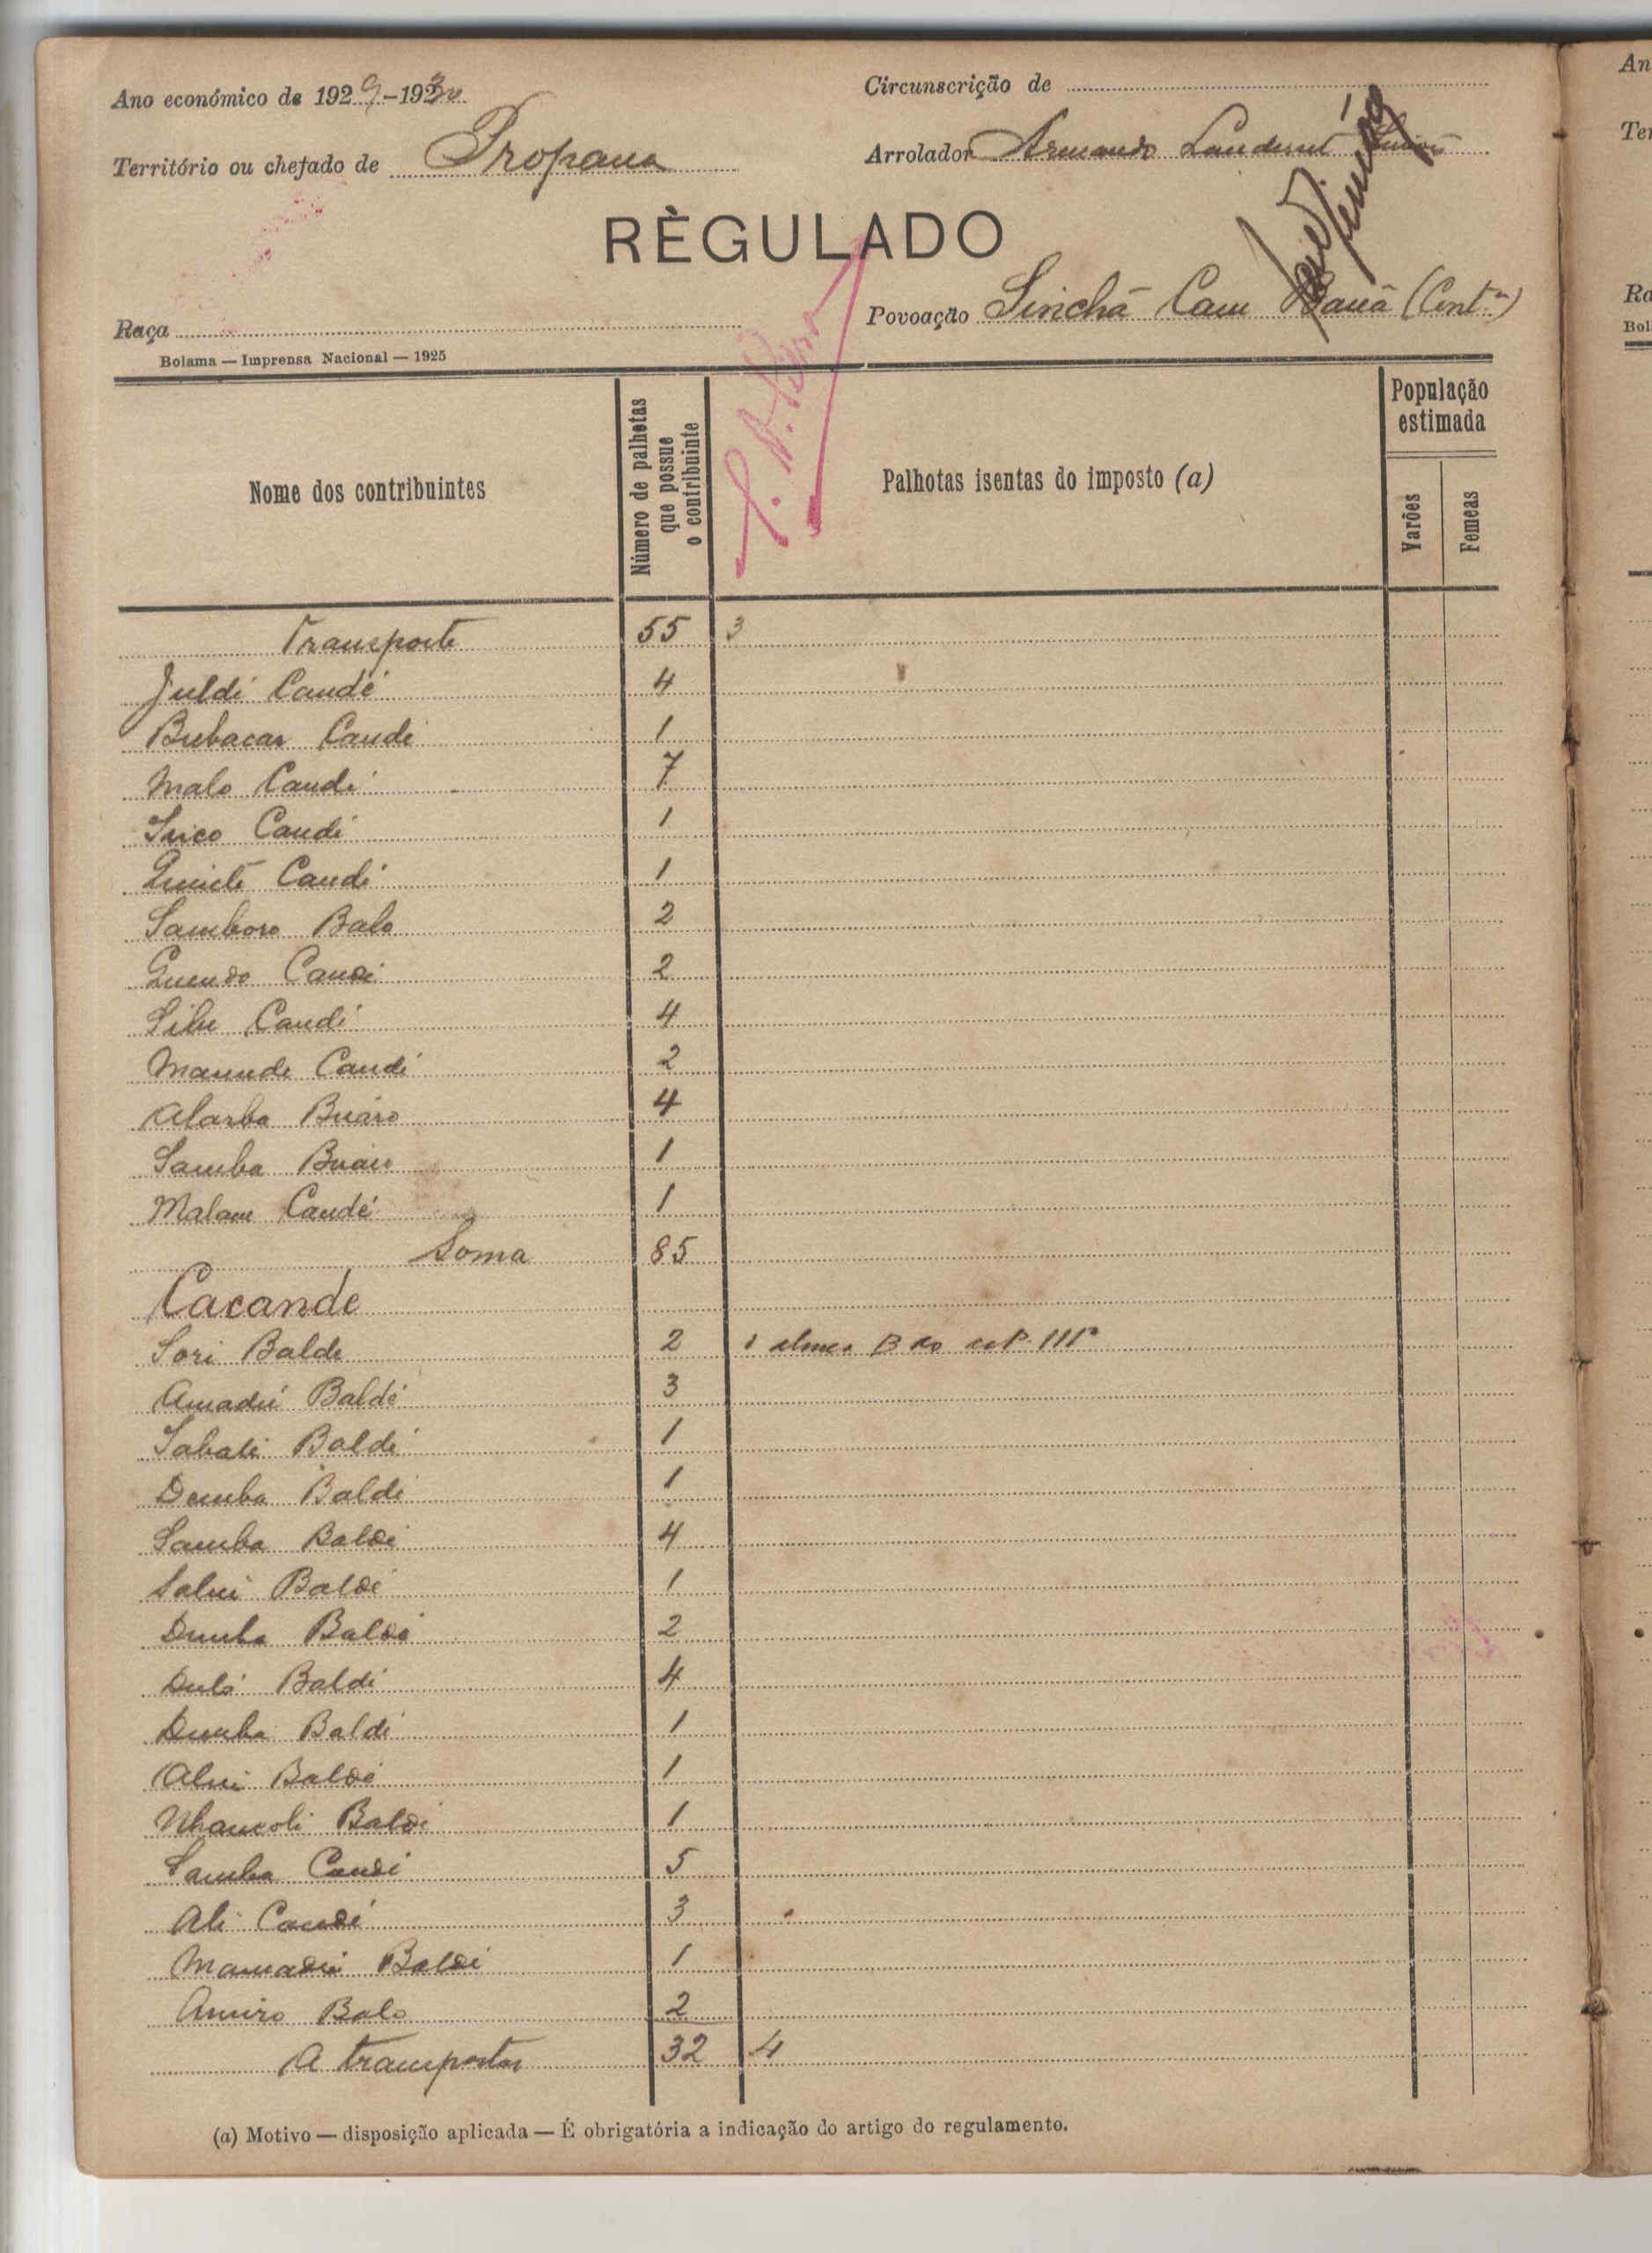 Ano económico de 1929-1930
Circunscrição de
Território ou chefado de Propana
Arrolador Armando
RÈGULADO
Raça
Povoação Sinchã Cam (Cont.)
Bolama — Imprensa Nacional — 1925
Nome dos contribuintes
Número de palhotas que possue o contribuinte
Palhotas isentas do imposto (a)
População estimada
Varões
Femeas
Transporte 55 3
Juldi Candé 4
Bubacar Candé 1
Malo Candi 7
Candi 1
Candi 1
Samboro Balo 2
Quendo Candi 2
Candi 4
Candi 2
Alarba Buáro 4
Samba 1
Malam Candé 1
Soma 85
Cacande
Sori Balde 2 1
Amadú Baldé 3
Sabali Baldé 1
Demba Baldé 1
Samba Baldé 4
Baldé 1
Demba Baldé 2
Baldi 4
Demba Baldi 1
Baldé 1
Baldé 1
Samba Candi 5
Ali Candé 3
Mamadú Baldé 1
Balo 2
A transportar 32 4
(a) Motivo — disposição aplicada — É obrigatória a indicação do artigo do regulamento.